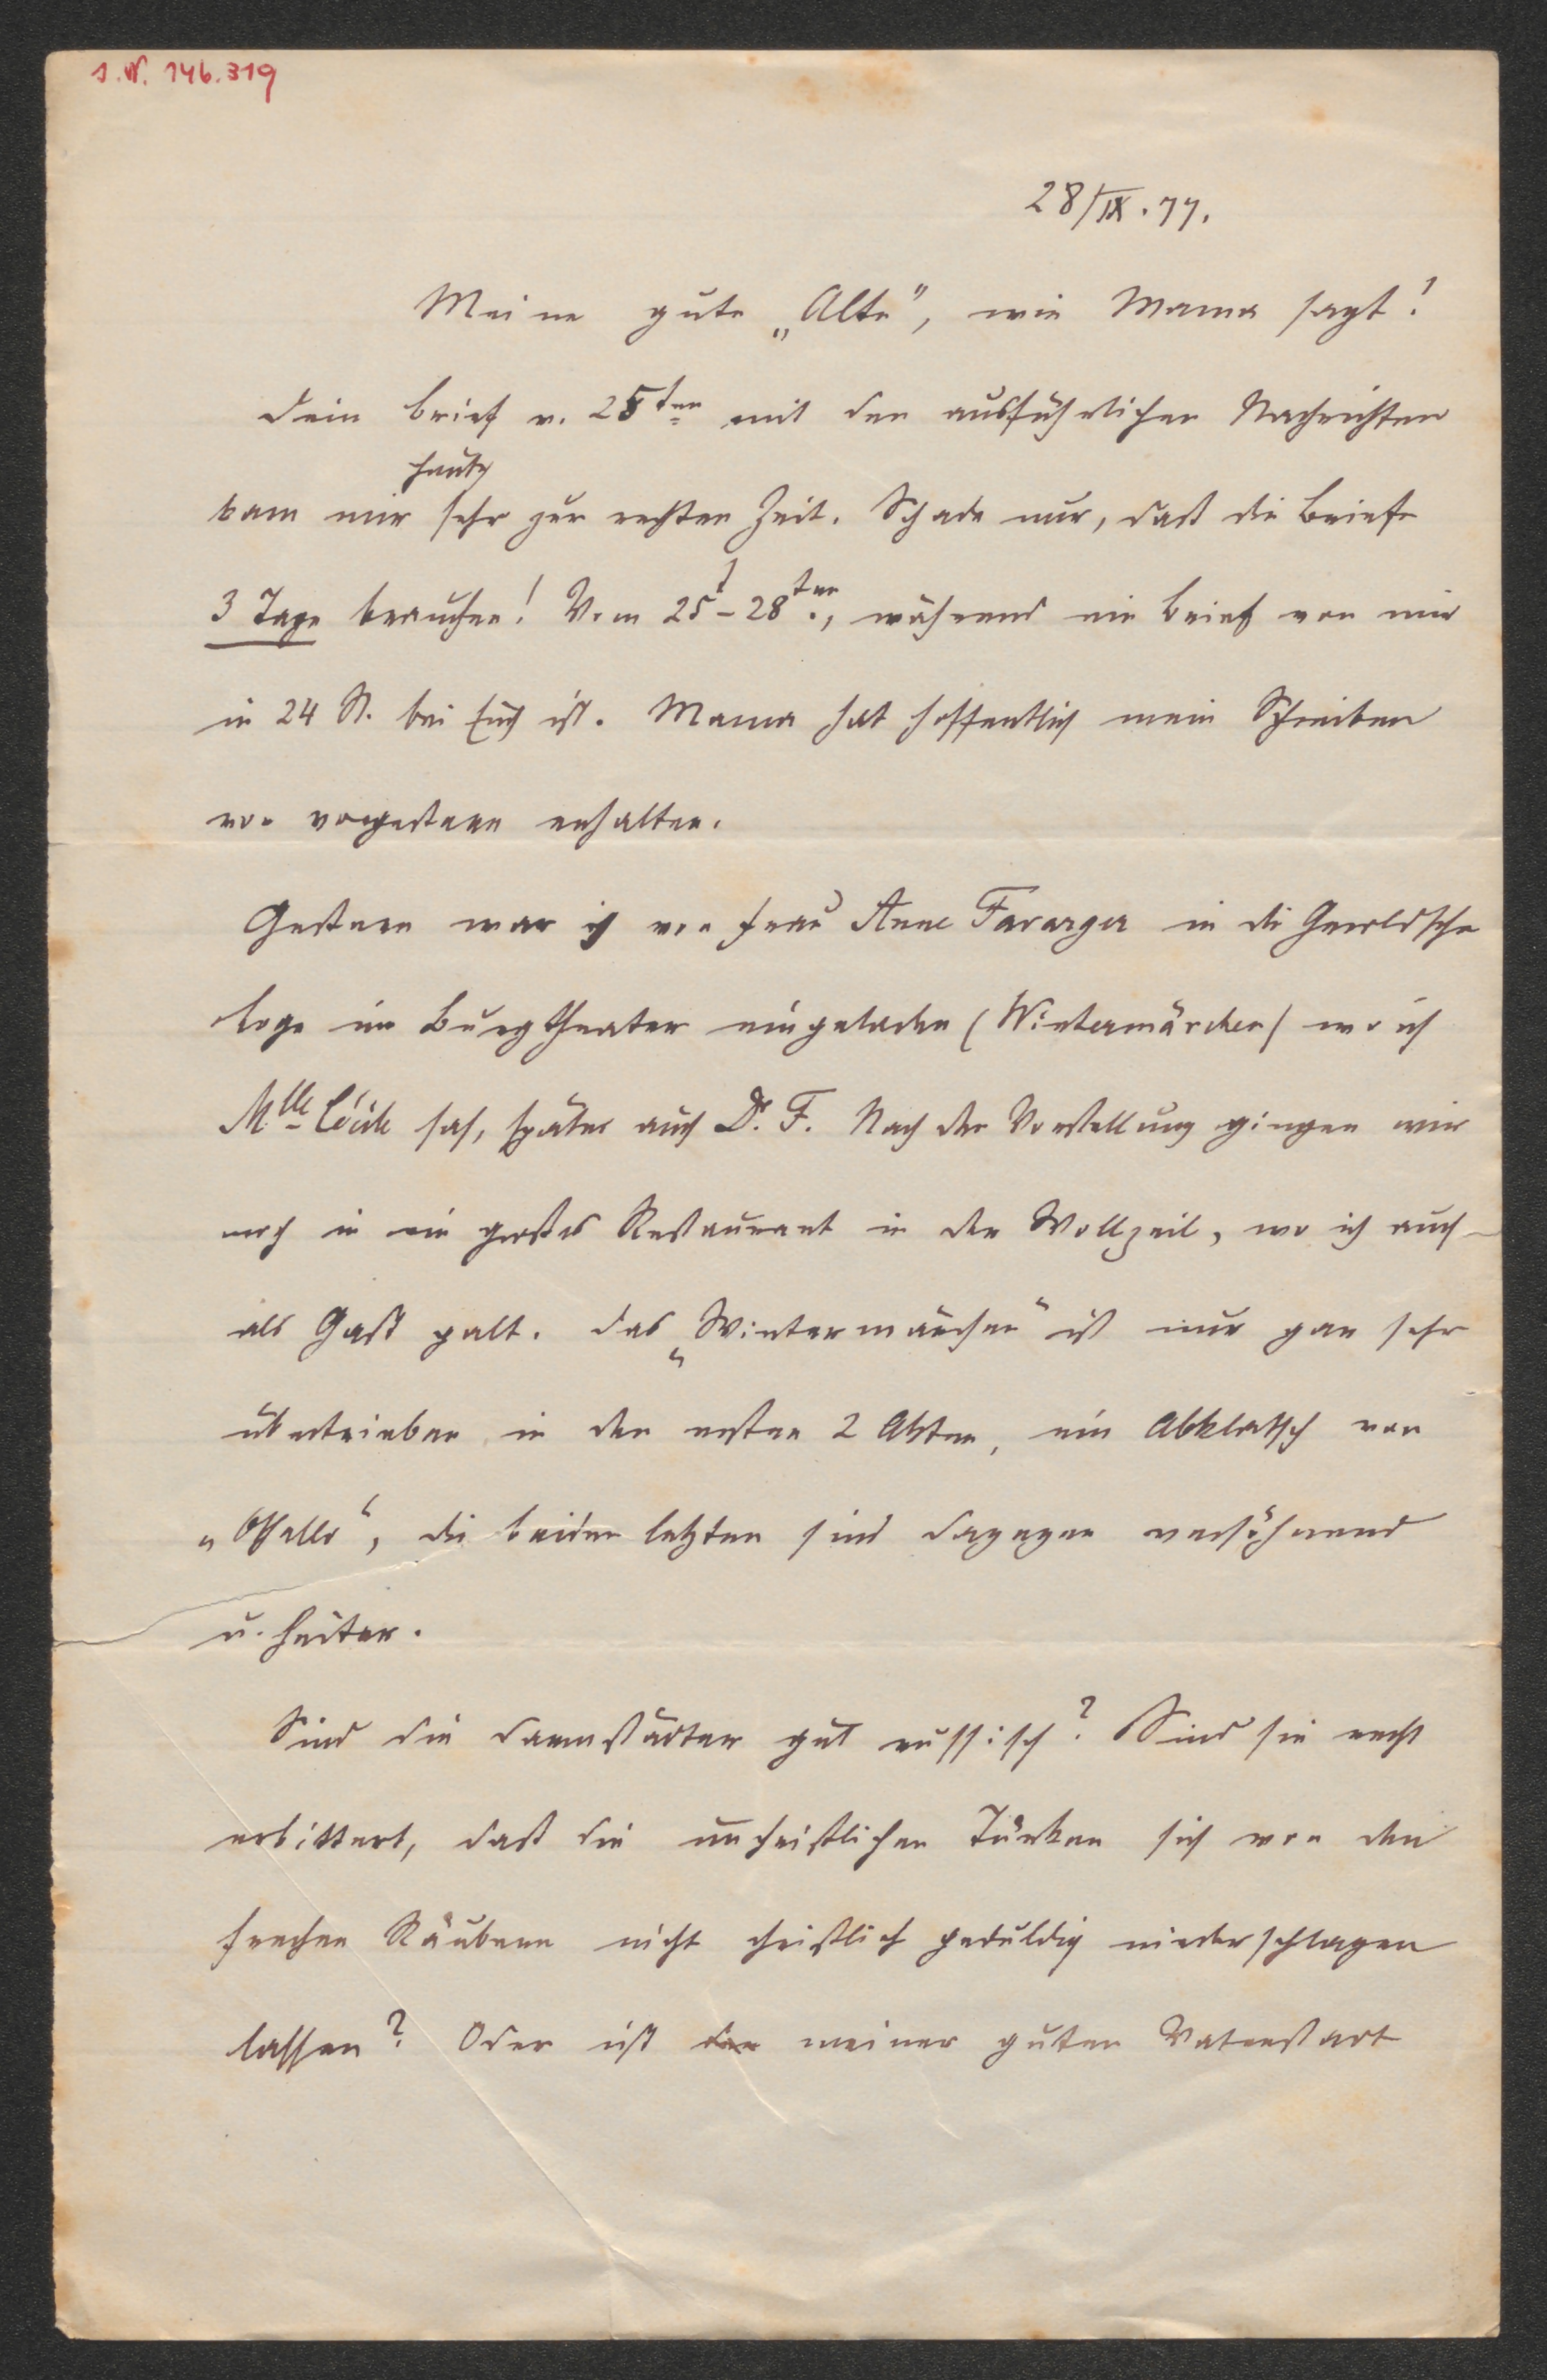 I.N. 146.319
28/IX. 77.
Meine gute „Alte", wie Mama sagt!
Dein Brief v. 25ten mit den ausführlichen Nachrichten
heute
kam mir sehr zur rechten Zeit. Schade nur, daß die Briefe
3 Tage brauchen! Vom 25t – 28ten., während ein Brief von mir
in 24 St. bei Euch ist. Mama hat hoffentlich mein Schreiben
von vorgestern erhalten.
Gestern war ich von Frau Anne Fararger in die Geroldsche
Loge im Burgtheater eingeladen (Wintermärchen) wo ich
Mlle Cécile sah, später auch Dr. F. Nach der Vorstellung gingen wir
noch in ein großes Restaurant in der Wollzeil, wo ich auch
als Gast galt. Das „Wintermärchen" ist nur gar sehr
übertrieben in den ersten 2 Akten, ein Abklatsch von
„Othello", die beiden letzten sind dagegen versöhnend
u. heiter.
Sind die Darmstädter gut russisch? Sind sie recht
erbittert, daß die unchristlichen Türken sich von den
frechen Räubern nicht christlich geduldig niederschlagen
lassen? Oder ist meiner guten Vaterstadt